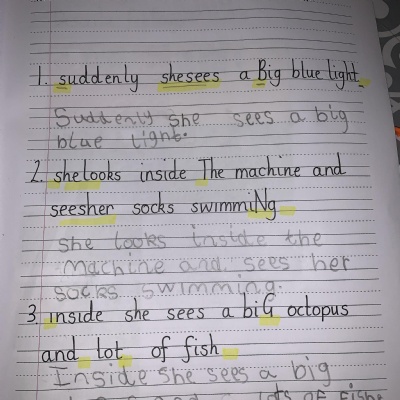 1. suddenly shesees a Big blue light.
Suddenly she sees a big
blue light.
2. shelooks inside The machine and
seesher socks swimmiNg
She looks inside the
machine and sees her
socks swimming.
3. inside she sees a biG octopus
and lot of fish
Inside she sees a big
lots of fishe